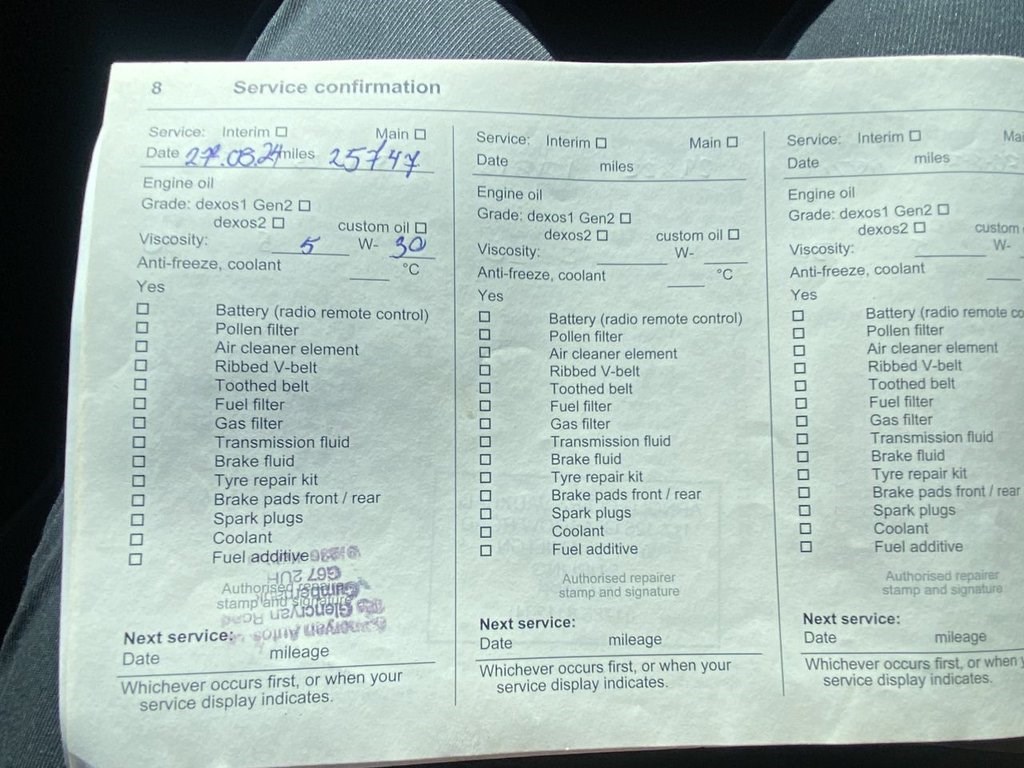 8 Service confirmation
Service: Interim Main
Date 27.08.24 miles 25747
Engine oil
Grade: dexos1 Gen2
dexos2 custom oil
Viscosity: 5 W- 30
Anti-freeze, coolant °C
Yes
Battery (radio remote control)
Pollen filter
Air cleaner element
Ribbed V-belt
Toothed belt
Fuel filter
Gas filter
Transmission fluid
Brake fluid
Tyre repair kit
Brake pads front / rear
Spark plugs
Coolant
Fuel additive
G67 2UH
Authorised repairer
Cumbernauld
stamp and signature
Glencryan Road
Glencryan Autos
Next service:
Date mileage
Whichever occurs first, or when your
service display indicates.
Service: Interim Main
Date miles
Engine oil
Grade: dexos1 Gen2
dexos2 custom oil
Viscosity: W-
Anti-freeze, coolant °C
Yes
Battery (radio remote control)
Pollen filter
Air cleaner element
Ribbed V-belt
Toothed belt
Fuel filter
Gas filter
Transmission fluid
Brake fluid
Tyre repair kit
Brake pads front / rear
Spark plugs
Coolant
Fuel additive
Authorised repairer
stamp and signature
Next service:
Date mileage
Whichever occurs first, or when your
service display indicates.
Service: Interim Mai
Date miles
Engine oil
Grade: dexos1 Gen2
dexos2 custom
Viscosity: W-
Anti-freeze, coolant
Yes
Battery (radio remote co
Pollen filter
Air cleaner element
Ribbed V-belt
Toothed belt
Fuel filter
Gas filter
Transmission fluid
Brake fluid
Tyre repair kit
Brake pads front / rear
Spark plugs
Coolant
Fuel additive
Authorised repairer
stamp and signature
Next service:
Date mileage
Whichever occurs first, or when y
service display indicates.